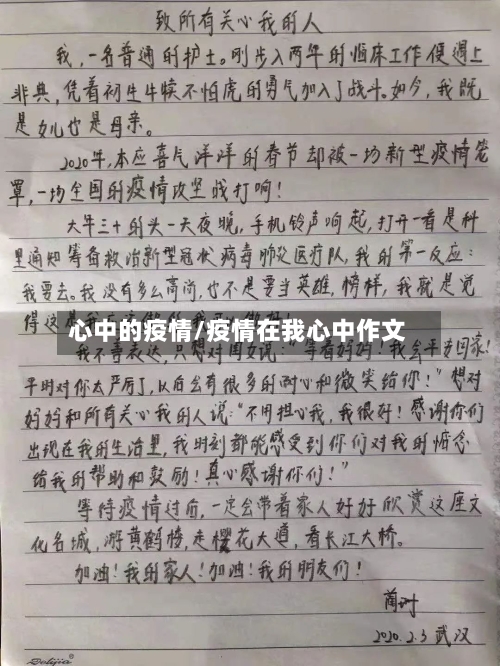 致所有关心我的人
我,一名普通的护士。刚步入两年的临床工作便遇上
非典,凭着初生牛犊不怕虎的勇气加入了战斗。如今,我既
是女儿也是母亲。
2020年,本应喜气洋洋的春节却被一场新型疫情笼
罩,一场全国的疫情攻坚战打响!
大年三十的头一天夜晚,手机铃声响起,打开一看是科
里通知筹备救治新型冠状病毒肺炎医疗队,我的第一反应:
我要去。我没有多么高尚,也不是要当英雄,榜样,我就是觉
得这是我
心中的疫情/疫情在我心中作文
我不善表达,只想对闺女说:“等着妈妈!我会平安回家!
平时对你太严厉了,以后会有很多的耐心和微笑给你!”想对
妈妈和所有关心我的人说:“不用担心我,我很好!感谢你们
出现在我的生活里,我时刻都能感受到你们对我的惦念
给我的帮助和鼓励!真心感谢你们!”
等待疫情过后,一定会带着家人好好欣赏这座文
化名城,游黄鹤楼,走樱花大道,看长江大桥。
加油!我的家人!加油!我的朋友们!
2020.2.3 武汉